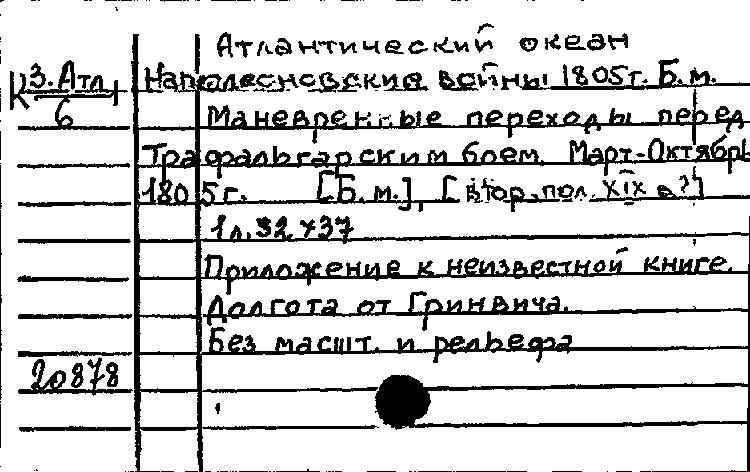 Атлантический океан
К 3. Атл
6
Наполеоновские войны 1805г. Б.м.
Маневренные переходы перед
Трафальгарским боем. Март-Октябрь
1805г. [Б.м.], [втор. пол. XIX в?]
1л. 32х37
Приложение к неизвестной книге.
Долгота от Гринвича.
Без масшт. и рельефа
20878